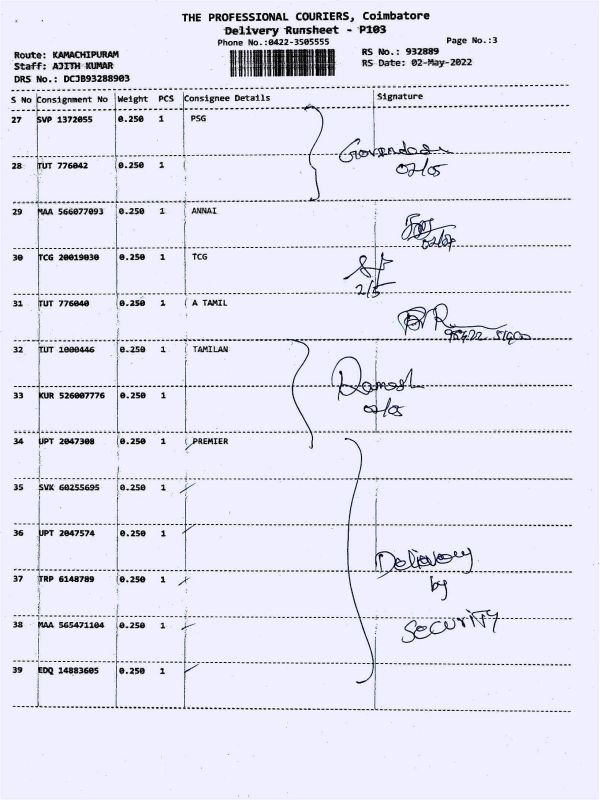 THE PROFESSIONAL COURIERS, Coimbatore
Delivery Runsheet - P103
Phone No.:0422-3505555
Page No.:3
Route: KAMACHIPURAM
RS No.: 932889
Staff: AJITH KUMAR
RS Date: 02-May-2022
DRS No.: DCJB93288903
S No Consignment No Weight PCS Consignee Details Signature
27 SVP 1372055 0.250 1 PSG
28 TUT 776042 0.250 1
02/05
29 MAA 566077093 0.250 1 ANNAI
30 TCG 20019030 0.250 1 TCG
2/5
31 TUT 776040 0.250 1 A TAMIL
32 TUT 1000446 0.250 1 TAMILAN
Ramesh
33 KUR 526007776 0.250 1
02/05
34 UPT 2047308 0.250 1 PREMIER
35 SVK 60255695 0.250 1
36 UPT 2047574 0.250 1
Delivery
37 TRP 6148789 0.250 1
by
38 MAA 565471104 0.250 1
SECURITY
39 EDQ 14883605 0.250 1